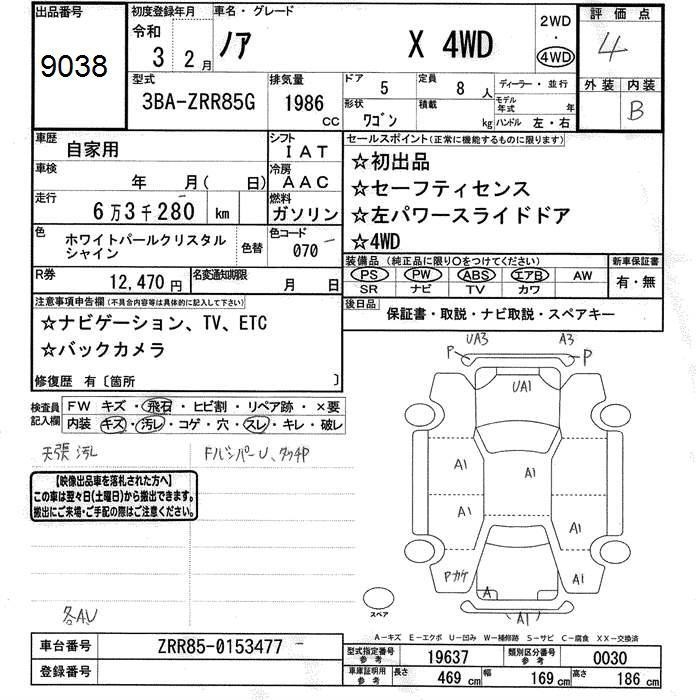 出品番号
9038
初度登録年月
令和
3 2月
車名・グレード
ノア X 4WD
2WD
・
4WD
評価点
4
外装 内装
B
型式
3BA-ZRR85G
排気量
1986
cc
ドア
5
定員
8 人
形状
ワゴン
積載
kg
ディーラー・並行
モデル年式 年
ハンドル 左・右
車歴
自家用
シフト
IAT
車検
年 月( 日)
冷房
AAC
走行
6万3千280 km
燃料
ガソリン
色
ホワイトパールクリスタル
シャイン
色替
色コード
070 -
R券
12,470円
名変通知期限
月 日
セールスポイント(正常に機能するものに限ります)
☆初出品
☆セーフティセンス
☆左パワースライドドア
☆4WD
装備品 (純正品に限り○をつけてください)
PS PW ABS エアB AW
SR ナビ TV カワ
新車保証書
有・無
後日品
保証書・取説・ナビ取説・スペアキー
注意事項申告欄(不具合内容等は具体的に記入して下さい)
☆ナビゲーション、TV、ETC
☆バックカメラ
修復歴 有〔箇所 〕
検査員
記入欄
FW キズ・飛石・ヒビ割・リペア跡・×要
内装 キズ・汚レ・コゲ・穴・スレ・キレ・破レ
天張汚レ
FバンパーU、タッチP
【映像出品車を落札された方へ】
この車は翌々日(土曜日)から搬出できます。
搬出にご来場・ご手配の際はご注意ください。
各AU
UA3 A3
P P
UA1
A1
A1
A1
A1
A1
Pカケ
A1
A
A1
スペア
A－キズ E－エクボ U－凹み W－補修跡 S－サビ C－腐食 XX－交換済
車台番号
ZRR85-0153477 -
登録番号
型式指定番号
参考
19637
類別区分番号
参考
0030
車庫証明用
参考
長さ
469 cm
幅
169 cm
高さ
186 cm